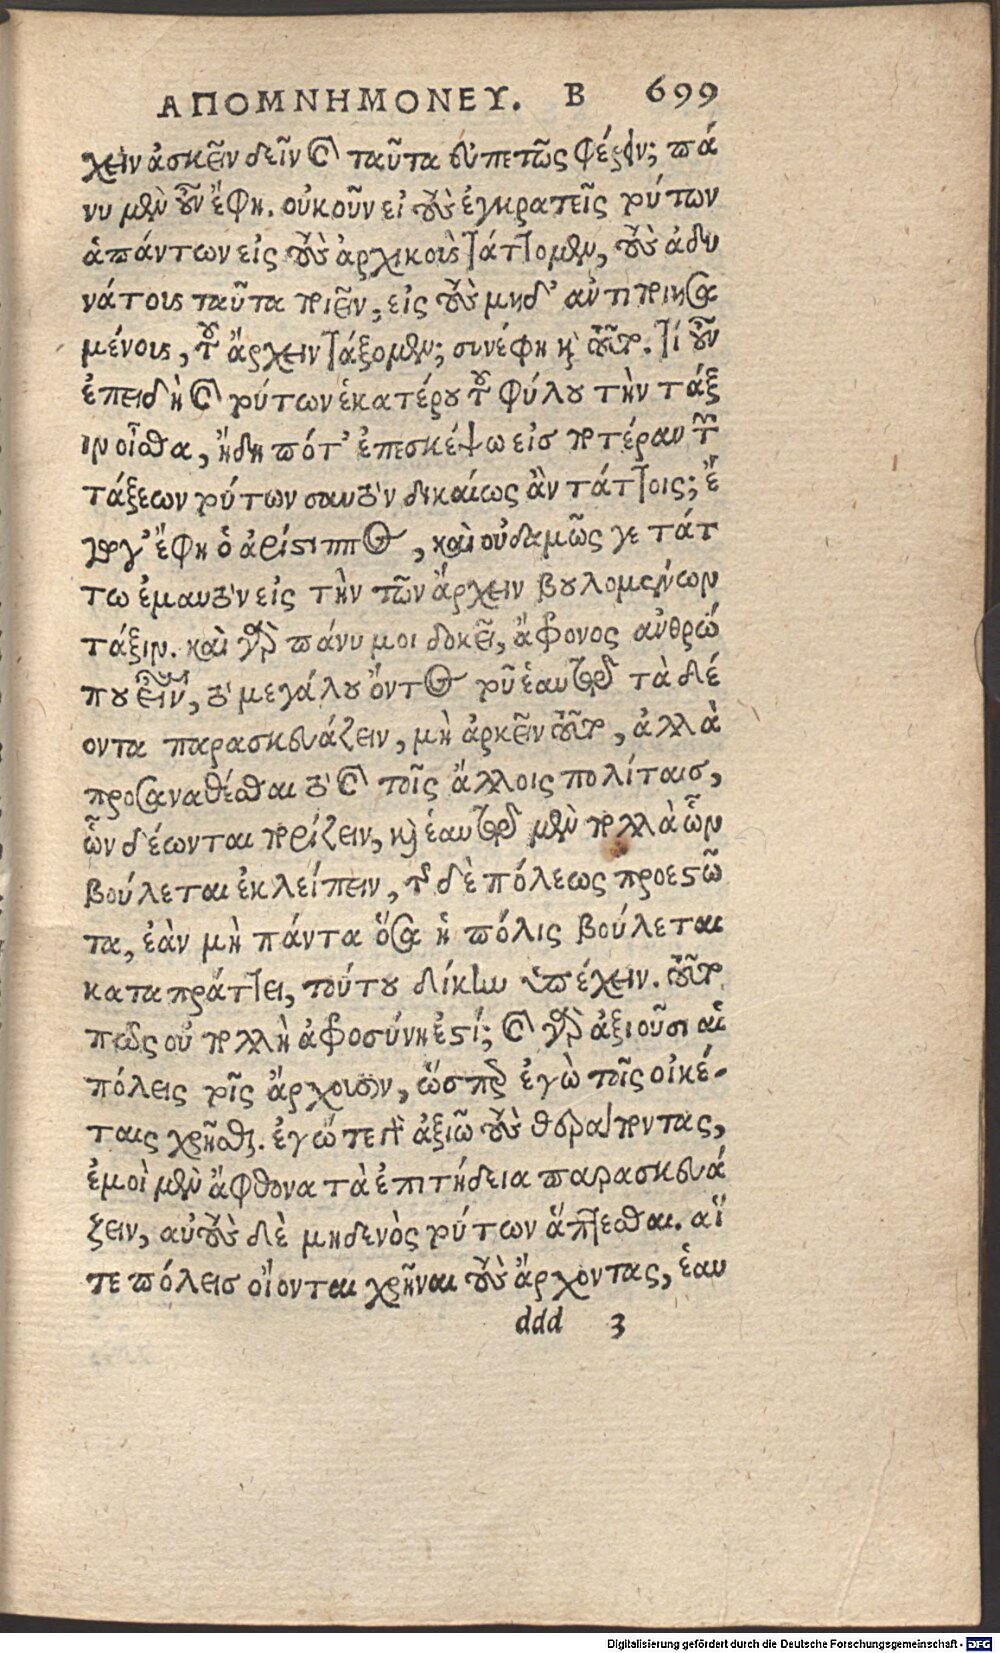 ΑΠΟΜΝΗΜΟΝΕΥ. Β 699
χειν ἀσκεῖν δεῖν καὶ ταῦτα εὐπετῶς φέρειν; πά
νυ μὲν οὖν ἔφη. οὐκοῦν εἰ τοὺς ἐγκρατεῖς τούτων
ἁπάντων εἰς τοὺς ἀρχικοὺς τάττομεν, τοὺς ἀδυ
νάτους ταῦτα ποιεῖν, εἰς τοὺς μηδ' ἀντιποιησα
μένους, τοῦ ἄρχειν τάξομεν; συνέφη καὶ τοῦτο. τί οὖν
ἐπειδὴ καὶ τούτων ἑκατέρου τοῦ φύλου τὴν τάξ
ιν οἶσθα, ἤδη πότ' ἐπεσκέψω εἰς ποτέραν τῶν
τάξεων τούτων σαυτὸν δικαίως ἂν τάττοις; ἔ
γωγ' ἔφη ὁ ἀρίστιππος, καὶ οὐδαμῶς γε τάτ
τω ἐμαυτὸν εἰς τὴν τῶν ἄρχειν βουλομένων
τάξιν. καὶ γὰρ πάνυ μοι δοκεῖ, ἄφρονος ἀνθρώ
που εἶναι, τὸ μεγάλου ὄντος τοῦ ἑαυτῷ τὰ δέ
οντα παρασκευάζειν, μὴ ἀρκεῖν τοῦτο, ἀλλὰ
προσαναθέσθαι τὸ καὶ τοῖς ἄλλοις πολίταις,
ὧν δέωνται πορίζειν, καὶ ἑαυτῷ μὲν πολλὰ ὧν
βούλεται ἐκλείπειν, τῆς δὲ πόλεως προεστῶ
τα, ἐὰν μὴ πάντα ὅσα ἡ πόλις βούλεται
καταπράττει, τούτου δίκην ὑπέχειν. τοῦτο
πῶς οὐ πολλὴ ἀφροσύνη ἐστί; καὶ γὰρ ἀξιοῦσι αἱ
πόλεις τοῖς ἄρχουσιν, ὥσπερ ἐγὼ τοῖς οἰκέ-
ταις χρῆσθαι. ἐγώ τε γὰρ ἀξιῶ τοὺς θεράποντας,
ἐμοὶ μὲν ἄφθονα τὰ ἐπιτήδεια παρασκευά
ζειν, αὐτοὺς δὲ μηδενὸς τούτων ἅπτεσθαι. αἵ
τε πόλεις οἴονται χρῆναι τοὺς ἄρχοντας, ἑαυ
ddd 3
Digitalisierung gefördert durch die Deutsche Forschungsgemeinschaft - DFG